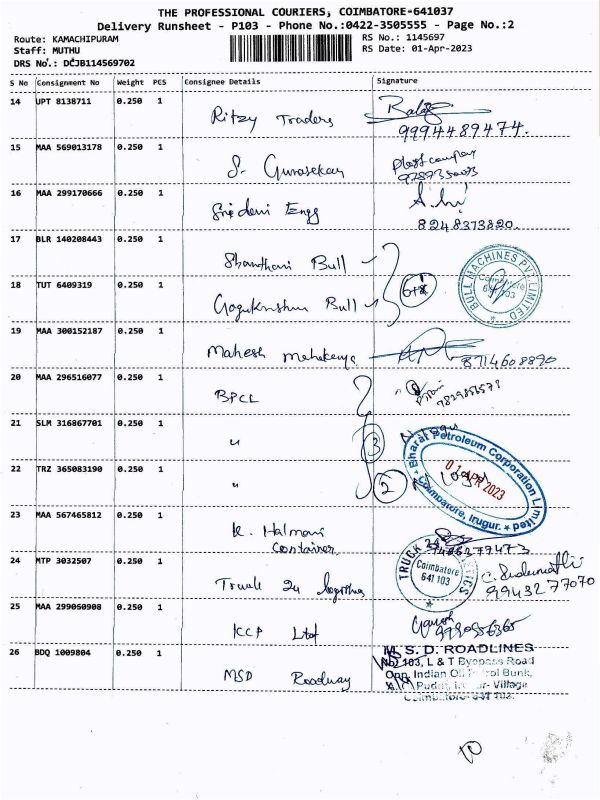 THE PROFESSIONAL COURIERS, COIMBATORE-641037
Delivery Runsheet - P103 - Phone No.:0422-3505555 - Page No.:2
Route: KAMACHIPURAM
RS No.: 1145697
Staff: MUTHU
RS Date: 01-Apr-2023
DRS No.: DCJB114569702
S No Consignment No Weight PCS Consignee Details Signature
14 UPT 8138711 0.250 1 Ritzy Traders
9994489474.
15 MAA 569013178 0.250 1 S. Gunasekar
16 MAA 299170666 0.250 1 Sridevi Engg
8248373820.
17 BLR 140208443 0.250 1 Shanthani Bull
18 TUT 6409319 0.250 1 Bull
BULL MACHINES PVT LIMITED
Coimbatore
641 103
19 MAA 300152187 0.250 1 Mahesh
8714608890
20 MAA 296516077 0.250 1 BPCL
21 SLM 316867701 0.250 1 "
3
22 TRZ 365083190 0.250 1 "
2
Bharat Petroleum Corporation Limited
01 APR 2023
Coimbatore, Irugur.
23 MAA 567465812 0.250 1 K. Halmani
Container
24 MTP 3032507 0.250 1 Truck 24 logistics
TRUCK
Coimbatore
641 103
9943277070
25 MAA 299060908 0.250 1 KCP Ltd
Ganesh
26 BDQ 1009804 0.250 1 MSD Roadway
M.S.D. ROADLINES
No. 103, L & T Byepass Road
Opp. Indian Oil Petrol Bunk,
Village
Coimbatore-641 103.
10